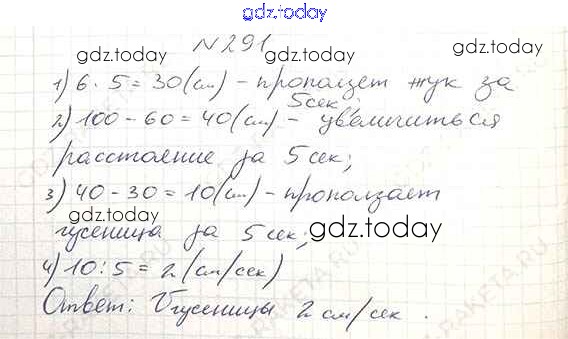 gdz.today
№ 291
gdz.today gdz.today
1) 6 · 5 = 30 (см) - проползет жук за
5 сек;
2) 100 - 60 = 40 (см) - увеличиться
расстояние за 5 сек;
3) 40 - 30 = 10 (см) - проползает
gdz.today
гусеница за 5 сек;
gdz.today
4) 10 : 5 = 2 (см/сек)
Ответ: V гусеницы 2 см/сек.
gdz.today